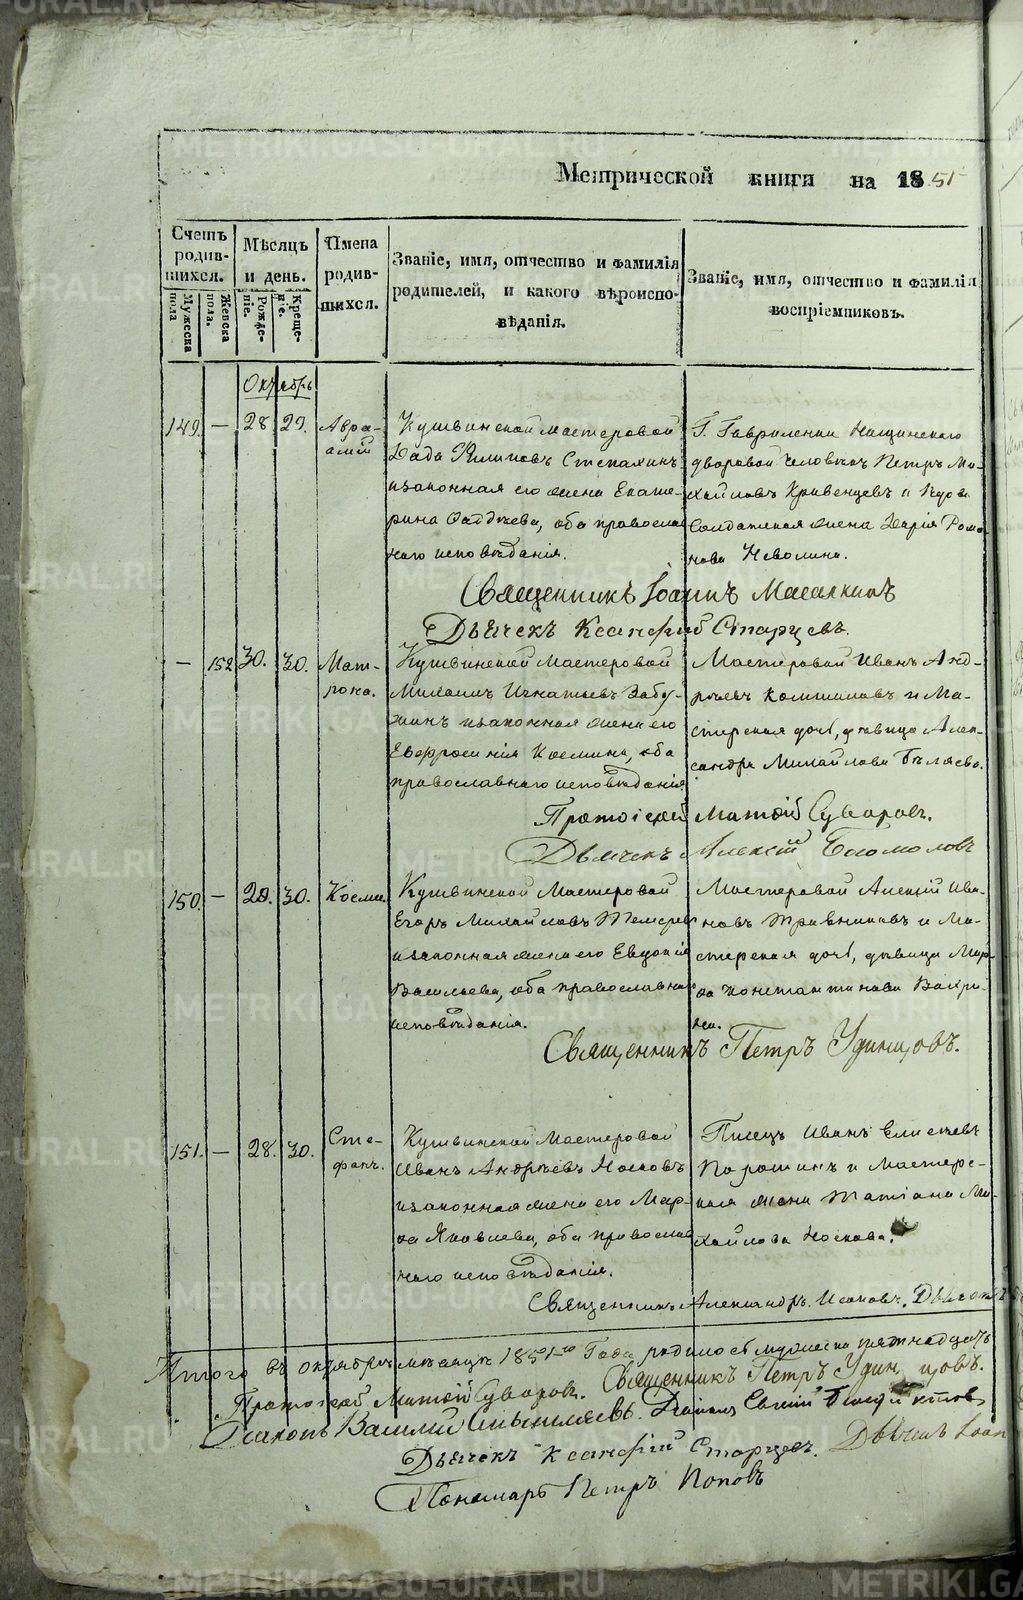 Метрической книги на 1851
Счетъ родив-
шихся.
Мужеска пола
Женска пола.
Мѣсяцъ
и день.
Рожде-
ніе.
Креще-
ніе.
Имена
родив-
шихся.
Званіе, имя, отчество и фамилія
родителей, и какого вѣроиспо-
вѣданія.
Званіе, имя, отчество и фамилія
воспріемниковъ.
Октябрь
149. — 28 29. Авра-
амій
Кушвинской мастеровой
Филиповъ
изаконная его жена Екате-
рина оба православ
наго исповѣданія.
Г.
дворовой человѣкъ Петръ Ми-
хайловъ Кривенцевъ и
Солдатская жена Дарія Рома
нова Неволина.
Священникъ Іоаннъ
Дьячекъ Ксанфій Старцевъ.
— 152 30. 30. Мат-
рона.
Кушвинской Мастеровой
Михаилъ Игнатьевъ Забу-
изаконная жена его
Евфросинія Косьмина, оба
православнаго исповѣданія
Мастеровой Иванъ Анд-
реевъ и Ма-
стерская дочь, дѣвица Алек-
сандра Михайлова Бѣляева.
Протоіерей Матѳій Суворовъ.
Дьячекъ Алексій Богомоловъ
150. — 28. 30. Косма
Кушвинской Мастеровой
Егоръ Михайловъ
изаконная жена его Евдокія
Васильева, оба православнаго
исповѣданія.
Мастеровой Алексій Ива-
новъ Травниковъ и Ма-
стерская дочь, дѣвица Мар-
ѳа Константинова Вахри-
на.
Священникъ Петръ Удинцовъ.
151. — 28. 30. Сте-
фанъ.
Кушвинской Мастеровой
Иванъ Андреевъ Носковъ
изаконная жена его Мар-
ѳа Яковлева, оба православ
наго исповѣданія.
Писецъ Иванъ Елисеевъ
Порошинъ и Мастерс-
кая жена Татіана Ми-
хайлова Носкова.
Священникъ Александръ Дьячекъ
Итого въ октябрѣ мѣсяцѣ 1851го Года родилось мужеска пятнадцать
Протоіерей Матѳій Суворовъ. Священникъ Петръ Удинцовъ.
Діаконъ Василій Діаконъ
Дьячекъ Ксанфій Старцевъ. Дьячекъ Іоан
Пономарь Петръ Поповъ
METRIKI.GASO-URAL.RU